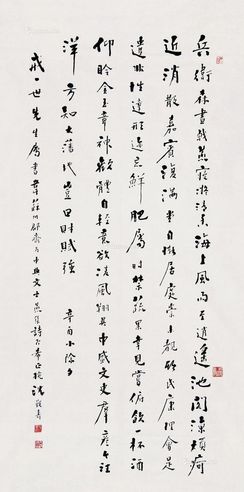 兵衛森畫戟燕寢凝清香海上風雨至逍遥池閣涼煩疴
近消散嘉賓復滿堂自慚居處崇未覩斯民康理會是
遣非性達形迹忘鮮肥屬時禁蔬果幸見嘗俯飲一杯酒
仰聆金玉章神歡體自輕意欲凌風翔吳中盛文史群彥今汪
洋方知大藩地豈曰財賦強 辛酉小除夕
戒一世先生屬書韋蘇州郡齋雨中與文士燕集詩即希正